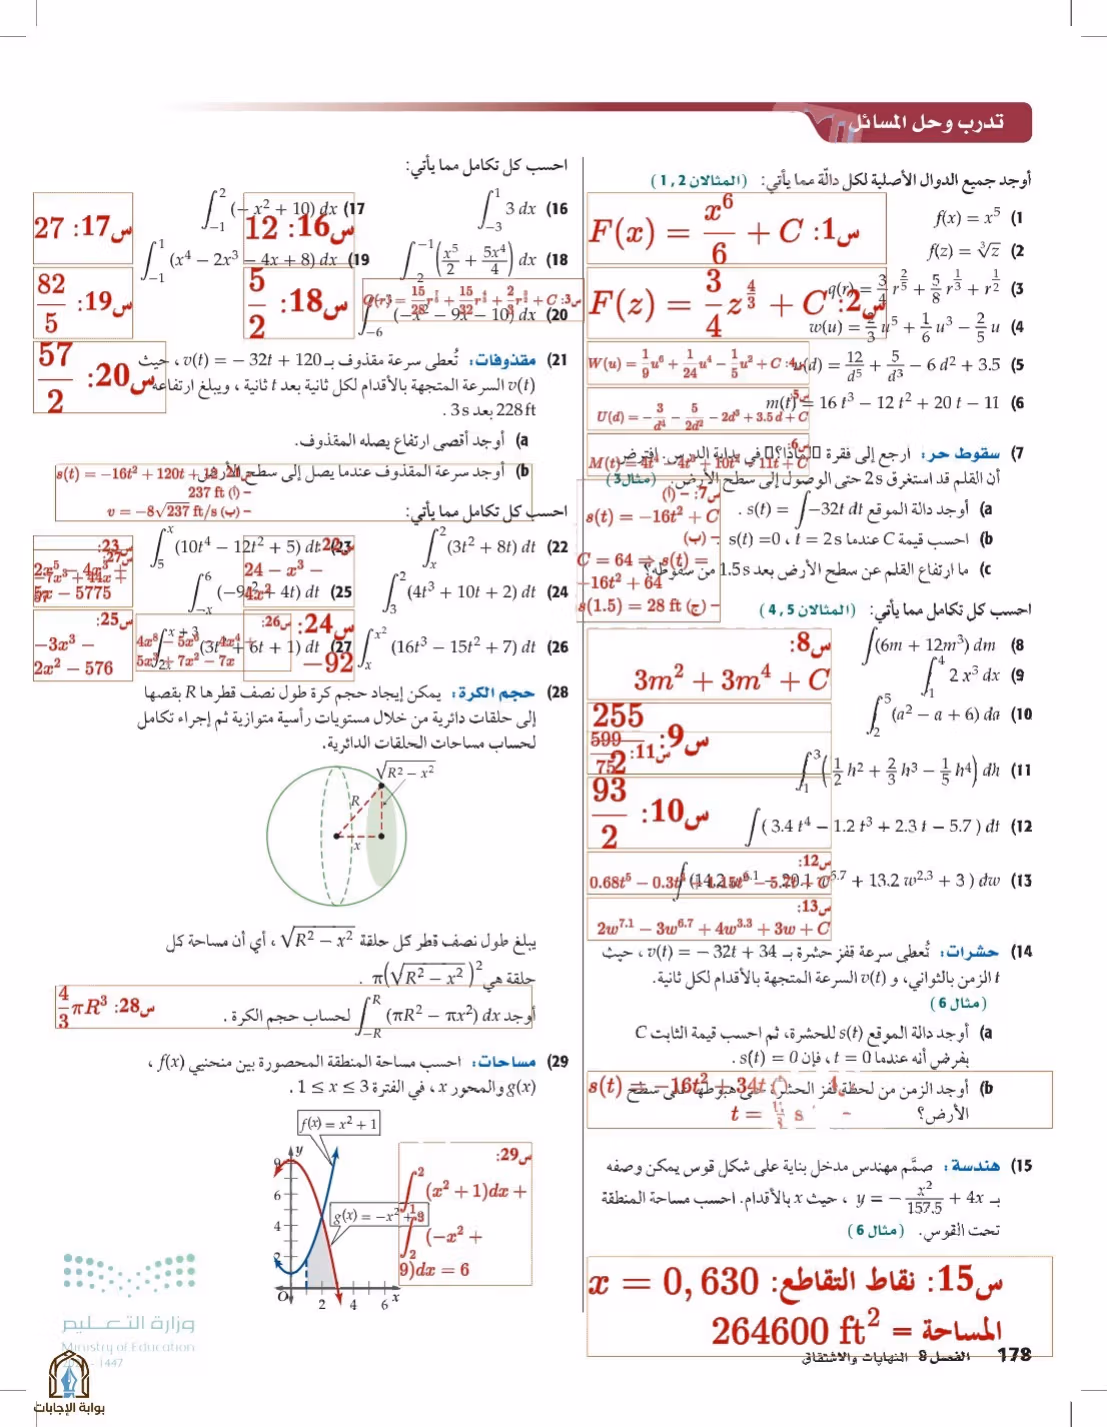 تدرب وحل المسائل
أوجد جميع الدوال الأصلية لكل دالّة مما يأتي: (المثالان 1, 2)
f(x) = x⁵ (1
س1: F(x) = x⁶/6 + C
f(z) = ∛z (2
س2: F(z) = 3/4 z^(4/3) + C
q(r) = 3/4 r^(2/5) + 5/8 r^(1/3) + r^(1/2) (3
w(u) = 2/3 u⁵ + 1/6 u³ − 2/5 u (4
W(u) = 1/9 u⁶ + 1/24 u⁴ − 1/5 u² + C :س4
u(d) = 12/d⁵ + 5/d³ − 6 d² + 3.5 (5
س5:
U(d) = −3/d⁴ − 5/2d² − 2d³ + 3.5d + C
m(t) = 16 t³ − 12 t² + 20 t − 11 (6
س6:
M(t) = 4t⁴ − 4t³ + 10t² − 11t + C
7) سقوط حر: ارجع إلى فقرة لماذا؟ في بداية الدرس. افترض
أن القلم قد استغرق 2s حتى الوصول إلى سطح الأرض. (مثال 3)
a) أوجد دالة الموقع s(t) = ∫ −32t dt .
b) احسب قيمة C عندما t = 2s ، s(t) = 0
c) ما ارتفاع القلم عن سطح الأرض بعد 1.5s من سقوطه؟
س7: – (أ)
s(t) = −16t² + C
– (ب)
C = 64 ⇒ s(t) =
−16t² + 64
s(1.5) = 28 ft (ج) –
احسب كل تكامل مما يأتي: (المثالان 4, 5)
∫(6m + 12m³) dm (8
س8:
3m² + 3m⁴ + C
∫₁⁴ 2 x³ dx (9
س9: 255/2
∫₂⁵ (a² − a + 6) da (10
س10: 93/2
∫₁³ (1/2 h² + 2/3 h³ − 1/5 h⁴) dh (11
س11: 599/75
∫ ( 3.4 t⁴ − 1.2 t³ + 2.3 t − 5.7 ) dt (12
س12:
∫ (14.2 w^6.1 − 20.1 w^5.7 + 13.2 w^2.3 + 3 ) dw (13
س13:
2w^7.1 − 3w^6.7 + 4w^3.3 + 3w + C
14) حشرات: تُعطى سرعة قفز حشرة بـ v(t) = − 32t + 34 ، حيث
t الزمن بالثواني، و v(t) السرعة المتجهة بالأقدام لكل ثانية.
(مثال 6)
a) أوجد دالة الموقع s(t) للحشرة، ثم احسب قيمة الثابت C
بفرض أنه عندما t = 0 ، فإن s(t) = 0 .
b) أوجد الزمن من لحظة قفز الحشرة حتى هبوطها على سطح
الأرض؟
s(t) = −16t² + 34t
15) هندسة: صمَّم مهندس مدخل بناية على شكل قوس يمكن وصفه
بـ y = − x²/157.5 + 4x ، حيث x بالأقدام. احسب مساحة المنطقة
تحت القوس. (مثال 6)
س15: نقاط التقاطع: x = 0, 630
المساحة = 264600 ft²
احسب كل تكامل مما يأتي:
∫₋₃¹ 3 dx (16
س16: 12
∫₋₁² (− x² + 10) dx (17
س17: 27
∫₋₂⁻¹ (x⁵/2 + 5x⁴/4) dx (18
س18: 5/2
∫₋₁¹ (x⁴ − 2x³ − 4x + 8) dx (19
س19: 82/5
(−x² − 9x − 10) dx (20
س20: 57/2
21) مقذوفات: تُعطى سرعة مقذوف بـ v(t) = − 32t + 120 ، حيث
v(t) السرعة المتجهة بالأقدام لكل ثانية بعد t ثانية ، ويبلغ ارتفاعه
228 ft بعد 3s .
a) أوجد أقصى ارتفاع يصله المقذوف.
b) أوجد سرعة المقذوف عندما يصل إلى سطح الأرض.
s(t) = −16t² + 120t + 12
237 ft (أ) –
v = −8√237 ft/s (ب) –
احسب كل تكامل مما يأتي:
∫ₓ² (3t² + 8t) dt (22
س22:
24 − x³ −
4x²
∫₅ˣ (10t⁴ − 12t² + 5) dt (23
س23:
2x⁵ − 4x³ +
5x − 5775
∫₃² (4t³ + 10t + 2) dt (24
س24:
−92
∫₋ₓ⁶ (−9t² + 4t) dt (25
س25:
−3x³ −
2x² − 576
∫ₓ^(x²) (16t³ − 15t² + 7) dt (26
س26:
4x⁸ − 5x⁶ − 4x⁴ +
5x³ + 7x² − 7x
∫₂ₓ^(x + 3) (3t² + 6t + 1) dt (27
س27:
28) حجم الكرة: يمكن إيجاد حجم كرة طول نصف قطرها R بقصها
إلى حلقات دائرية من خلال مستويات رأسية متوازية ثم إجراء تكامل
لحساب مساحات الحلقات الدائرية.
√R² − x²
R
x
يبلغ طول نصف قطر كل حلقة √R² − x² ، أي أن مساحة كل
حلقة هي π(√R² − x²)² .
أوجد ∫₋R^R (πR² − πx²) dx لحساب حجم الكرة .
س28: 4/3 πR³
29) مساحات: احسب مساحة المنطقة المحصورة بين منحنيي f(x) ،
g(x) والمحور x ، في الفترة 1 ≤ x ≤ 3 .
f(x) = x² + 1
g(x) = −x² + 9
y
6
4
2
O 2 4 6 x
س29:
∫₁² (x² + 1)dx +
∫₂³ (−x² +
9)dx = 6
وزارة التعليم
Ministry of Education
1447
بوابة الإجابات
178 الفصل 8 النهايات والاشتقاق